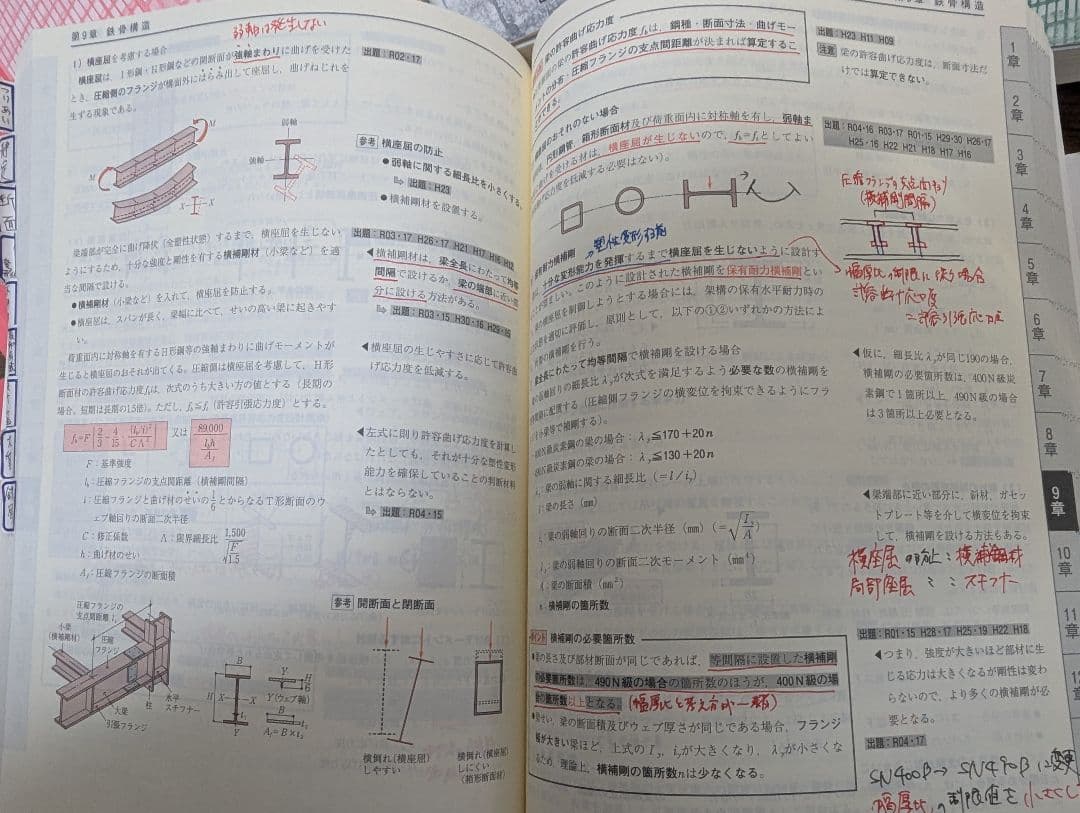 第9章 鉄骨構造
弱軸は発生しない
1）横座屈を考慮する場合
横座屈は、I形鋼・H形鋼などの開断面が強軸まわりに曲げを受けた
とき、圧縮側のフランジが構面外にはらみ出して座屈し、曲げねじれを
生ずる現象である。
出題：R02・17
M
M
弱軸
強軸
X
X
参考 横座屈の防止
●弱軸に関する細長比を小さくする。
出題：H23
●横補剛材を設置する。
梁端部が完全に曲げ降伏（全塑性状態）するまで、横座屈を生じない
ようにするため、十分な強度と剛性を有する横補剛材（小梁など）を適
当な間隔で設ける。
●横補剛材（小梁など）を入れて、横座屈を防止する。
●横座屈は、スパンが長く、梁幅に比べて、せいの高い梁に起きやす
出題：R03・17 H26・17 H21 H17 H16 H12
◀横補剛材は、梁全長にわたって均等
間隔で設けるか、梁の端部に近い部
分に設ける方法がある。
出題：R03・15 H30・16 H29・30
荷重面内に対称軸を有するH形鋼等の強軸まわりに曲げモーメントが
生じると横座屈のおそれが出てくる。圧縮側は横座屈を考慮して、H形
断面材の許容曲げ応力度fbは、次式のうち大きい方の値とする（長期の
場合。短期は長期の1.5倍）。ただし、fb≦ft（許容引張応力度）とする。
◀横座屈の生じやすさに応じて許容曲
げ応力度を低減する。
fb=F{2/3－4/15・(lb/i)²/CΛ²} 又は 89,000/(lbh/Af)
F：基準強度
lb：圧縮フランジの支点間距離（横補剛間隔）
i：圧縮フランジと曲げ材のせいの1/6とからなるT形断面のウ
ェブ軸回りの断面二次半径
C：修正係数 Λ：限界細長比 1,500/√(F/1.5)
h：曲げ材のせい
Af：圧縮フランジの断面積
◀左式に則り許容曲げ応力度を計算し
たとしても、それが十分な塑性変形
能力を確保していることの判断材料
とはならない。
出題：R04・15
圧縮フランジの
支点間距離lb
小梁
（横補剛材）
圧縮
フランジ
水平
スチフナー
柱
大梁
引張フランジ
B
H
X
X
Y
Y
Y（ウェブ軸）
Af=B×tf
参考 開断面と閉断面
横倒れ（横座屈）
しやすい
横倒れ（横座屈）
しにくい
（箱形断面材）
第9章 鉄骨構造
梁の許容曲げ応力度
の梁の許容曲げ応力度fbは、鋼種・断面寸法・曲げモー
メントの分布・圧縮フランジの支点間距離が決まれば算定するこ
とができる。
出題：H23 H11 H09
注意 梁の許容曲げ応力度は、断面寸法だ
けでは算定できない。
横座屈のおそれのない場合
円形鋼管、箱形断面材及び荷重面内に対称軸を有し、弱軸ま
わりに曲げを受ける材は、横座屈が生じないので、fb=ftとしてよい
（許容曲げ応力度を低減する必要はない）。
出題：R04・16 R03・17 R01・15 H29・30 H26・17
H25・16 H22 H21 H18 H17 H16
圧縮フランジの支点間距離
（横補剛間隔）
幅厚比の制限に従う場合
許容曲げ応力度
=許容引張応力度
塑性変形する能
保有耐力横補剛
十分な変形能力を発揮するまで横座屈を生じないように設計す
ることが望ましい。このように設計された横補剛を保有耐力横補剛とい
の横座屈を制御しようとする場合には、架構の保有水平耐力時の
を適切に評価し、原則として、以下の①②いずれかの方法によ
横補剛を行う。
全長にわたって均等間隔で横補剛を設ける場合
弱軸回りの細長比λyが次式を満足するよう必要な数の横補剛を
間隔に配置する（圧縮側フランジの横変位を拘束できるようにフラ
小梁等で補剛する）。
400N級炭素鋼の梁の場合：λy≦170+20n
490N級炭素鋼の梁の場合：λy≦130+20n
λy：梁の弱軸に関する細長比（=l/iy）
l：梁の長さ（mm）
iy：梁の弱軸回りの断面二次半径（mm）（=√(Iy/A)）
Iy：梁の弱軸回りの断面二次モーメント（mm⁴）
A：梁の断面積（mm²）
n：横補剛の箇所数
◀仮に、細長比λyが同じ190の場合、
横補剛の必要箇所数は、400N級炭
素鋼で1箇所以上、490N級の場合
は3箇所以上必要となる。
◀梁端部に近い部分に、斜材、ガセッ
トプレート等を介して横変位を拘束
して、横補剛を設ける方法もある。
横座屈の防止：横補剛材
局部座屈 〃 ：スチフナー
ポイント 横補剛の必要箇所数
●梁の長さ及び部材断面が同じであれば、等間隔に設置した横補剛
の必要箇所数は、490N級の場合の箇所数のほうが、400N級の場
合の箇所数以上となる。（幅厚比と考え方が一緒）
●梁せい、梁の断面積及びウェブ厚さが同じである場合、フランジ
幅が大きい梁ほど、上式のIy、iyが大きくなり、λyが小さくな
るため、理論上、横補剛の箇所数nは少なくなる。
出題：R01・15 H28・17 H25・19 H22 H18
◀つまり、強度が大きいほど部材に生
じる応力は大きくなるが剛性は変わ
らないので、より多くの横補剛が必
要となる。
出題：R04・17
SN400B→SN490Bに変更
幅厚比の制限値を小さくし
1章
2章
3章
4章
5章
6章
7章
8章
9章
10章
11章